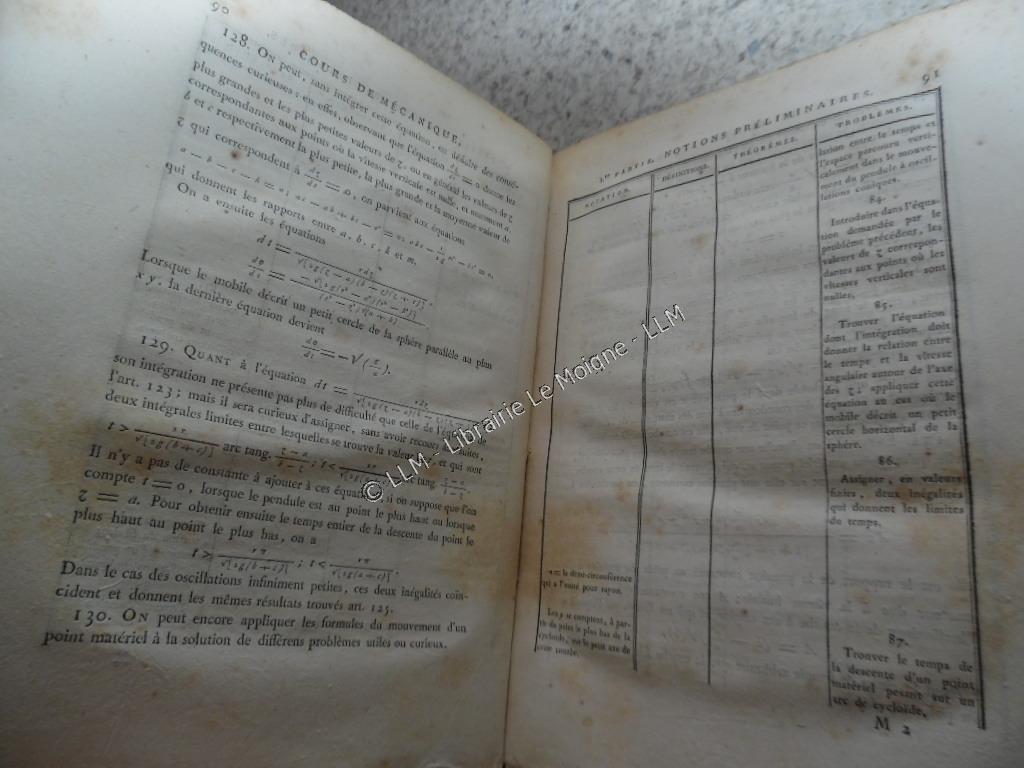 90
COURS DE MÉCANIQUE.
128. ON peut, sans intégrer cette équation, en déduire des consé-
quences curieuses; en effet, observant que l'équation dz/dt = 0 donne les
plus grandes et les plus petites valeurs de z, ou en général les valeurs de z
correspondantes aux points où la vitesse verticale est nulle, et nommant a,
b et c respectivement la plus petite, la plus grande et la moyenne valeur de
z qui correspondent à dz/dt = 0, on parvient aux équations
qui donnent les rapports entre a, b, c, k et m.
On a ensuite les équations
Lorsque le mobile décrit un petit cercle de la sphère parallèle au plan
x y, la dernière équation devient
129. QUANT à l'équation dt =
son intégration ne présente pas plus de difficulté que celle de
l'art. 123; mais il sera curieux d'assigner, sans avoir recours
suites,
deux intégrales limites entre lesquelles se trouve la valeur
et qui sont
arc tang.
tang.
Il n'y a pas de constante à ajouter à ces
si on suppose que l'on
compte t = 0, lorsque le pendule est au point le plus haut ou lorsque
z = a. Pour obtenir ensuite le temps entier de la descente du point le
plus haut au point le plus bas, on a
Dans le cas des oscillations infiniment petites, ces deux inégalités coïn-
cident et donnent les mêmes résultats trouvés art. 125.
130. ON peut encore appliquer les formules du mouvement d'un
point matériel à la solution de différens problèmes utiles ou curieux.
91
Ire PARTIE. NOTIONS PRÉLIMINAIRES.
NOTATION.
DÉFINITION.
THÉORÈMES.
PROBLÈMES.
lation entre le temps et
l'espace parcouru verti-
calement dans le mouve-
ment du pendule à oscil-
lations coniques.
84.
Introduire dans l'équa-
tion demandée par le
problème précédent, les
valeurs de z correspon-
dantes aux points où les
vitesses verticales sont
nulles.
85.
Trouver l'équation
dont l'intégration doit
donner la relation entre
le temps et la vitesse
angulaire autour de l'axe
des z; appliquer cette
équation au cas où le
mobile décrit un petit
cercle horizontal de la
sphère.
86.
Assigner, en valeurs
finies, deux inégalités
qui donnent les limites
du temps.
π = la demi-circonférence
qui a l'unité pour rayon.
Les y se comptent, à par-
tir du point le plus bas de la
cycloïde, sur le petit axe de
cette courbe.
87.
Trouver le temps de
la descente d'un point
matériel pesant sur un
arc de cycloïde.
M 2
© LLM - Librairie Le Moigne - LLM